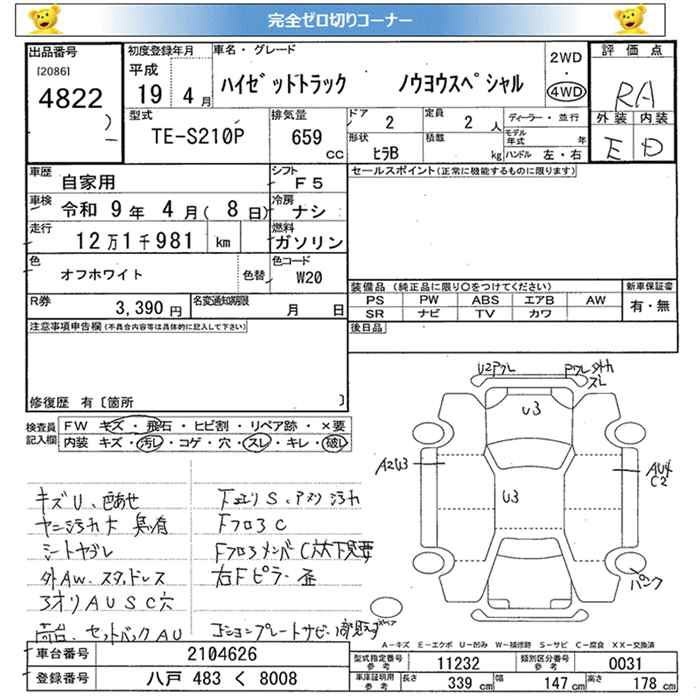 完全ゼロ切りコーナー
出品番号
[2086]
4822
初度登録年月
平成
19 4月
車名・グレード
ハイゼッドトラック ノウヨウスペシャル
2WD
・
4WD
評価点
RA
外装 内装
E D
型式
TE-S210P
排気量
659
cc
ドア
2
定員
2 人
形状
ヒラB
積載
kg
ディーラー・並行
モデル年式 年
ハンドル 左・右
車歴
自家用
シフト
F5
車検
令和 9年 4月( 8日)
冷房
ナシ
走行
12万1千981 km
燃料
ガソリン
色
オフホワイト
色替
色コード
W20
R券
3,390 円
名変通知期限
月 日
セールスポイント(正常に機能するものに限ります)
装備品 (純正品に限り○をつけてください)
新車保証書
PS PW ABS エアB AW
SR ナビ TV カワ
有・無
後日品
注意事項申告欄(不具合内容等は具体的に記入して下さい)
修復歴 有〔箇所 〕
検査員記入欄
FW キズ・飛石・ヒビ割・リペア跡・×要
内装 キズ・汚レ・コゲ・穴・スレ・キレ・破レ
キズU、色あせ
ヤニ汚れ大
シートヤブレ
外AW、スタッドレス
3オリAUSC穴
セットバックAU
下廻りS、アブリ汚れ
Fフロアc
FフロアメンバC
右Fピラー歪
U3
U3
A2U3
AU4
C2
パンク
A-キズ E-エクボ U-凹み W-補修跡 S-サビ C-腐食 XX-交換済
車台番号
2104626
登録番号
八戸 483 く 8008
型式指定番号
参考
11232
類別区分番号
参考
0031
車庫証明用
参考
長さ 339 cm 幅 147 cm 高さ 178 cm